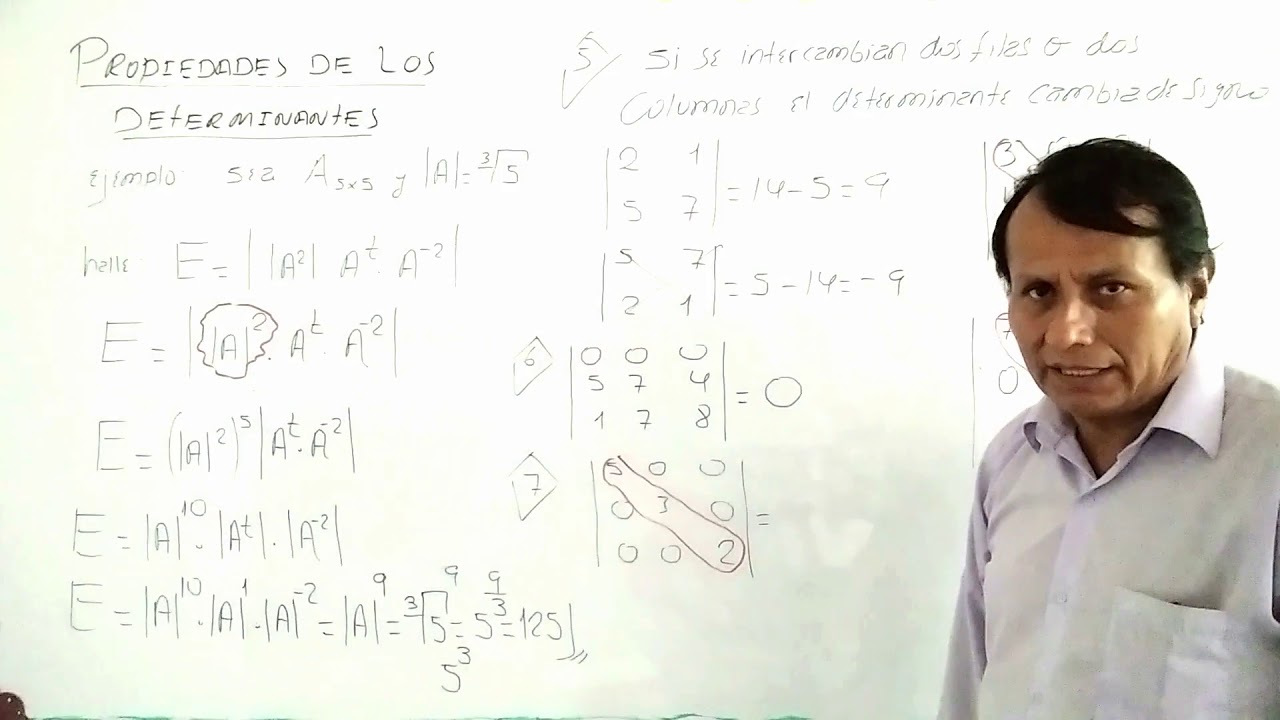 PROPIEDADES DE LOS
DETERMINANTES
Ejemplo: sea A₅ₓ₅ y |A| = ∛5
halle: E = | |A²| Aᵗ · A⁻² |
E = | |A|² · Aᵗ · A⁻² |
E = (|A|²)⁵ |Aᵗ · A⁻²|
E = |A|¹⁰ · |Aᵗ| · |A⁻²|
E = |A|¹⁰ · |A|¹ · |A|⁻² = |A|⁹ = ∛5⁹ = 5^(9/3) = 125
5³
5 Si se intercambian dos filas o dos
columnas el determinante cambia de signo
|2 1|
|5 7| = 14 - 5 = 9
|5 7|
|2 1| = 5 - 14 = -9
6 |0 0 0|
|5 7 4| = 0
|1 7 8|
7 |5 0 0|
|0 3 0| =
|0 0 2|
3
7
0